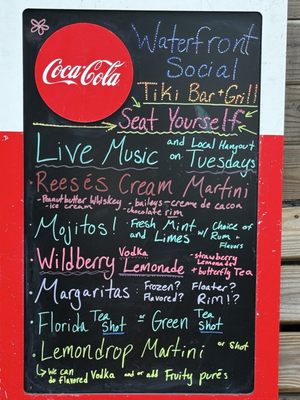 Coca-Cola
Waterfront
Social
Tiki Bar + Grill
Seat Yourself
Live Music and Local Hangout on Tuesdays
Reesés Cream Martini
- Peanutbutter Whiskey - baileys - creme de cacon
- ice cream - chocolate rim
Mojitos! · Fresh Mint and Limes · Choice of Rum + Flavors
Wildberry Vodka Lemonade - strawberry Lemonaded + butterfly Tea
Margaritas : Frozen? Flavored? Floater? Rim!?
Florida Tea Shot or Green Tea Shot
Lemondrop Martini or Shot
↳ We can do flavored Vodka and or add Fruity purés